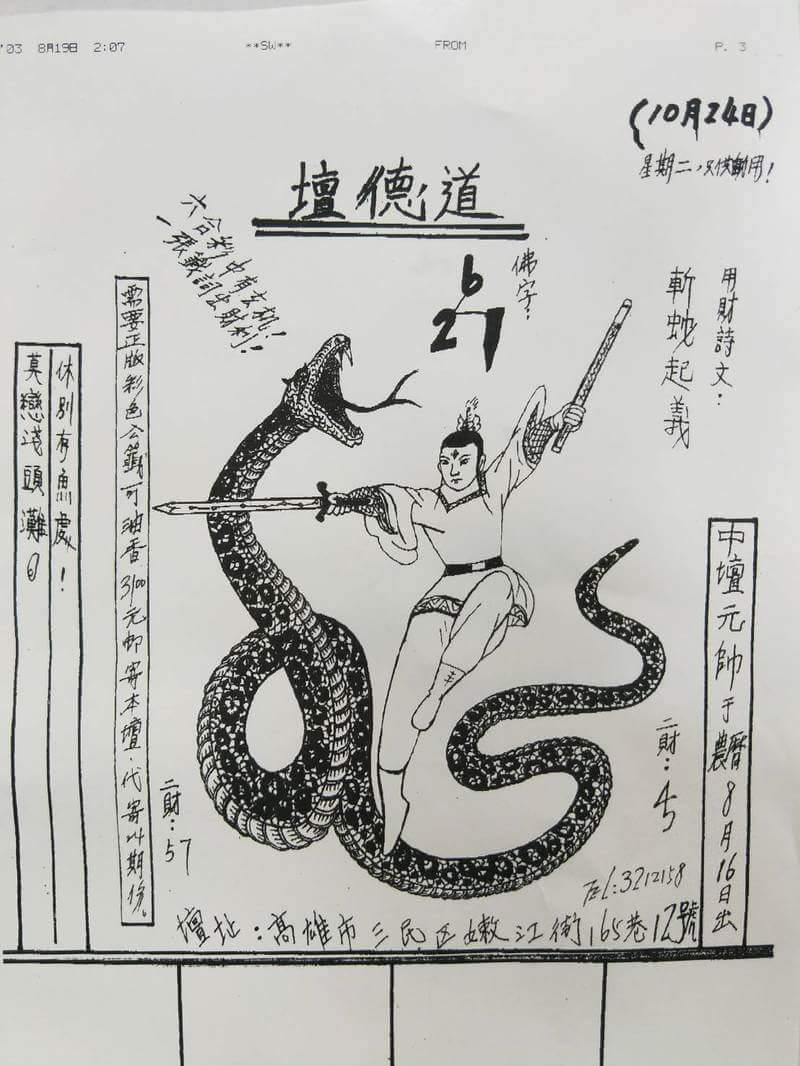 '03 8月19日 2:07 **SW** FROM P. 3
(10月24日)
星期二,只供參用!
壇德道
六合彩中有玄机!
一張籤詞出財利!
佛字:
6
27
用財詩文:
斬蛇起義
需要正版彩色公籤可油香3100元郵寄本壇.代寄24期份。
休別有魚處!
莫戀淺頭灘。
中壇元帥于農曆8月16日出
二財:45
二財:57
TEL:3212158
壇址:高雄市三民区嫩江街165巷12號